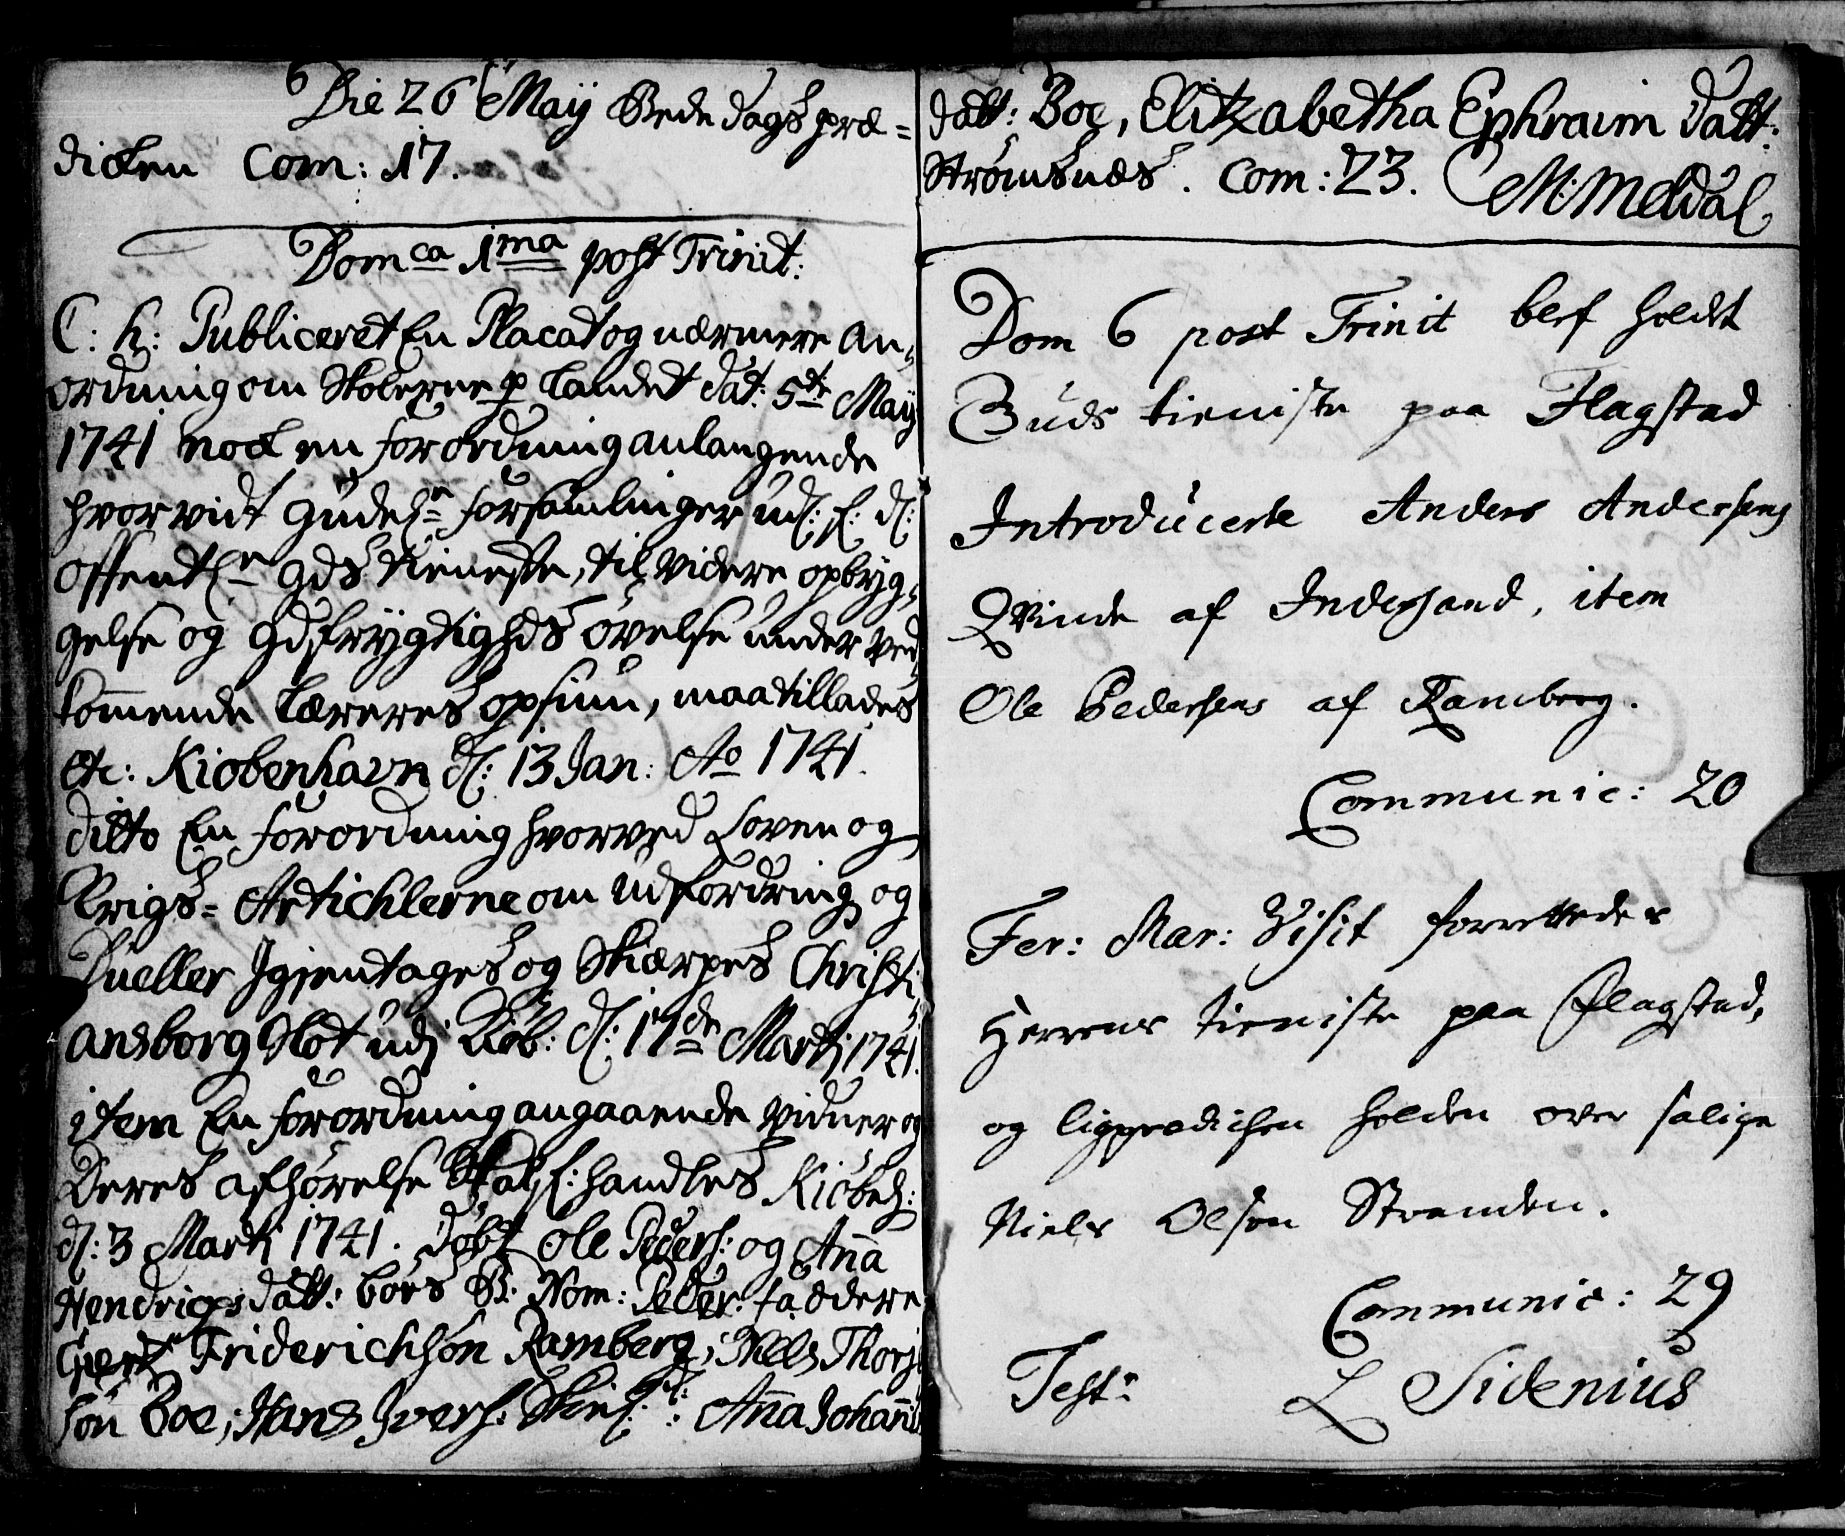 Die 26 Maÿ Bede dags præ=
dicken Com: 17.
Domca 1ma post Trinit:
C: h: Publiceret En Placat og nærmere An=
ordning om Skolerne p landet dat: 5te Maÿ
1741 nock en forordning anlangende
hvorvidt gudel: forsamlinger ud: f: d:
offentl: gds tieneste, til videre opbÿg=
gelse og gdsfrÿgtigheds øvelse under ved
kom̄ende læreres opsiun, maa tillades
etc: Kiøbenhavn d: 13 Jan: Ao 1741.
ditto En forordning hvorved Loven og
Krigs= Artichlerne om udfordring og
Dueller Igientages og Skiærpes Christi
ansborg Slot udj Kiøb: d: 17de Martj 1741.
item En forordning angaaende vidner og
Deres afhørelse Skal f: handles Kiøbh:
d: 3 Martj 1741. døbt Ole Peders: og An̄a
Hendrics datt: børs B. Nom: Peder. faddere
Giert Friderichsøn Ramberg, Niels Thorj
søn Boe; Hans Ivers: An̄a Johan̄is
datt: Boe, Elitzabetha Ephraim datt:
Strømsnæs. Com: 23. M: Meldal
Dom 6 post Trinit blef holdt
Guds tieniste paa Flagstad
Introducerte Anders Andersens
Qvinde af Indersand, item
Ole Pedersens af Ramberg.
Communic: 20
Fer: Mar: Visit forrettedes
Herrens tieniste paa Flagstad,
og ligprædichen holden over salige
Niels Olsøn Stranden.
Communic: 29
Test: L Sidenius